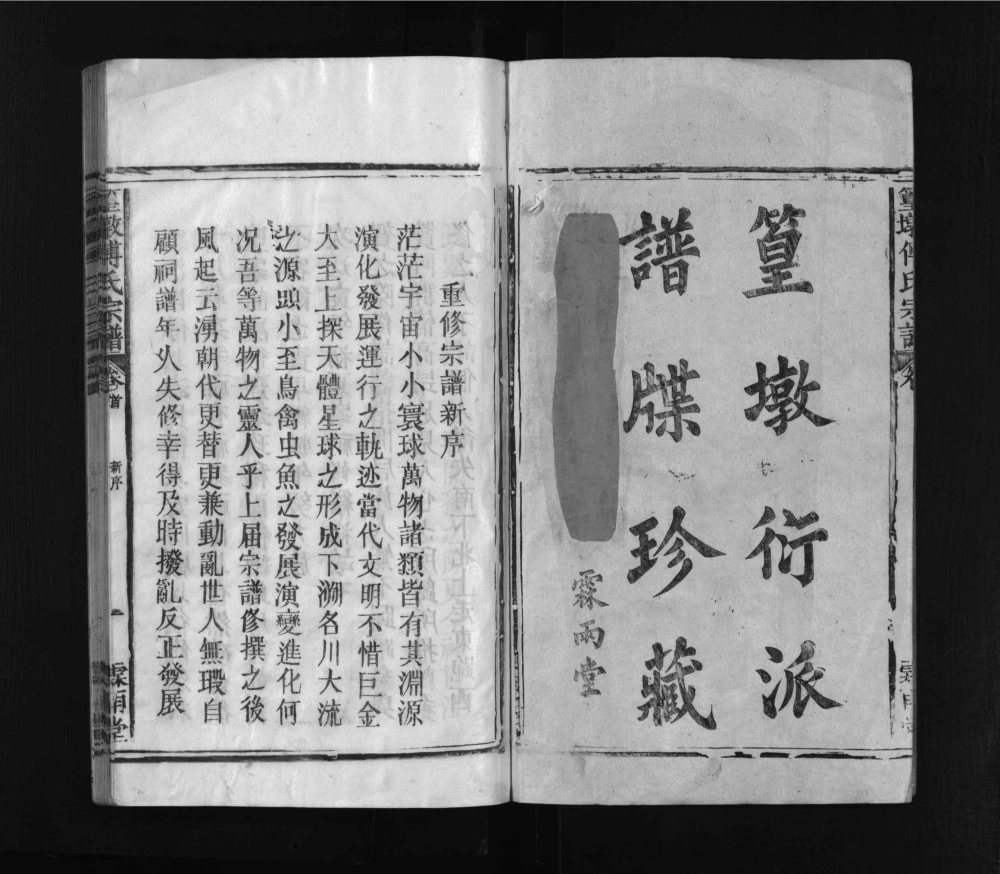 篁墩衍派
譜牒珍藏
霖雨堂
重修宗譜新序
茫茫宇宙小小寰球萬物諸類皆有其淵源
演化發展運行之軌迹當代文明不惜巨金
大至上探天體星球之形成下溯名川大流
之源頭小至鳥禽虫魚之發展演變進化何
况吾等萬物之靈人乎上届宗譜修撰之後
風起云湧朝代更替更兼動亂世人無瑕自
顧祠譜年久失修幸得及時撥亂反正發展
篁墩傅氏宗譜
卷首
新序
一
霖雨堂